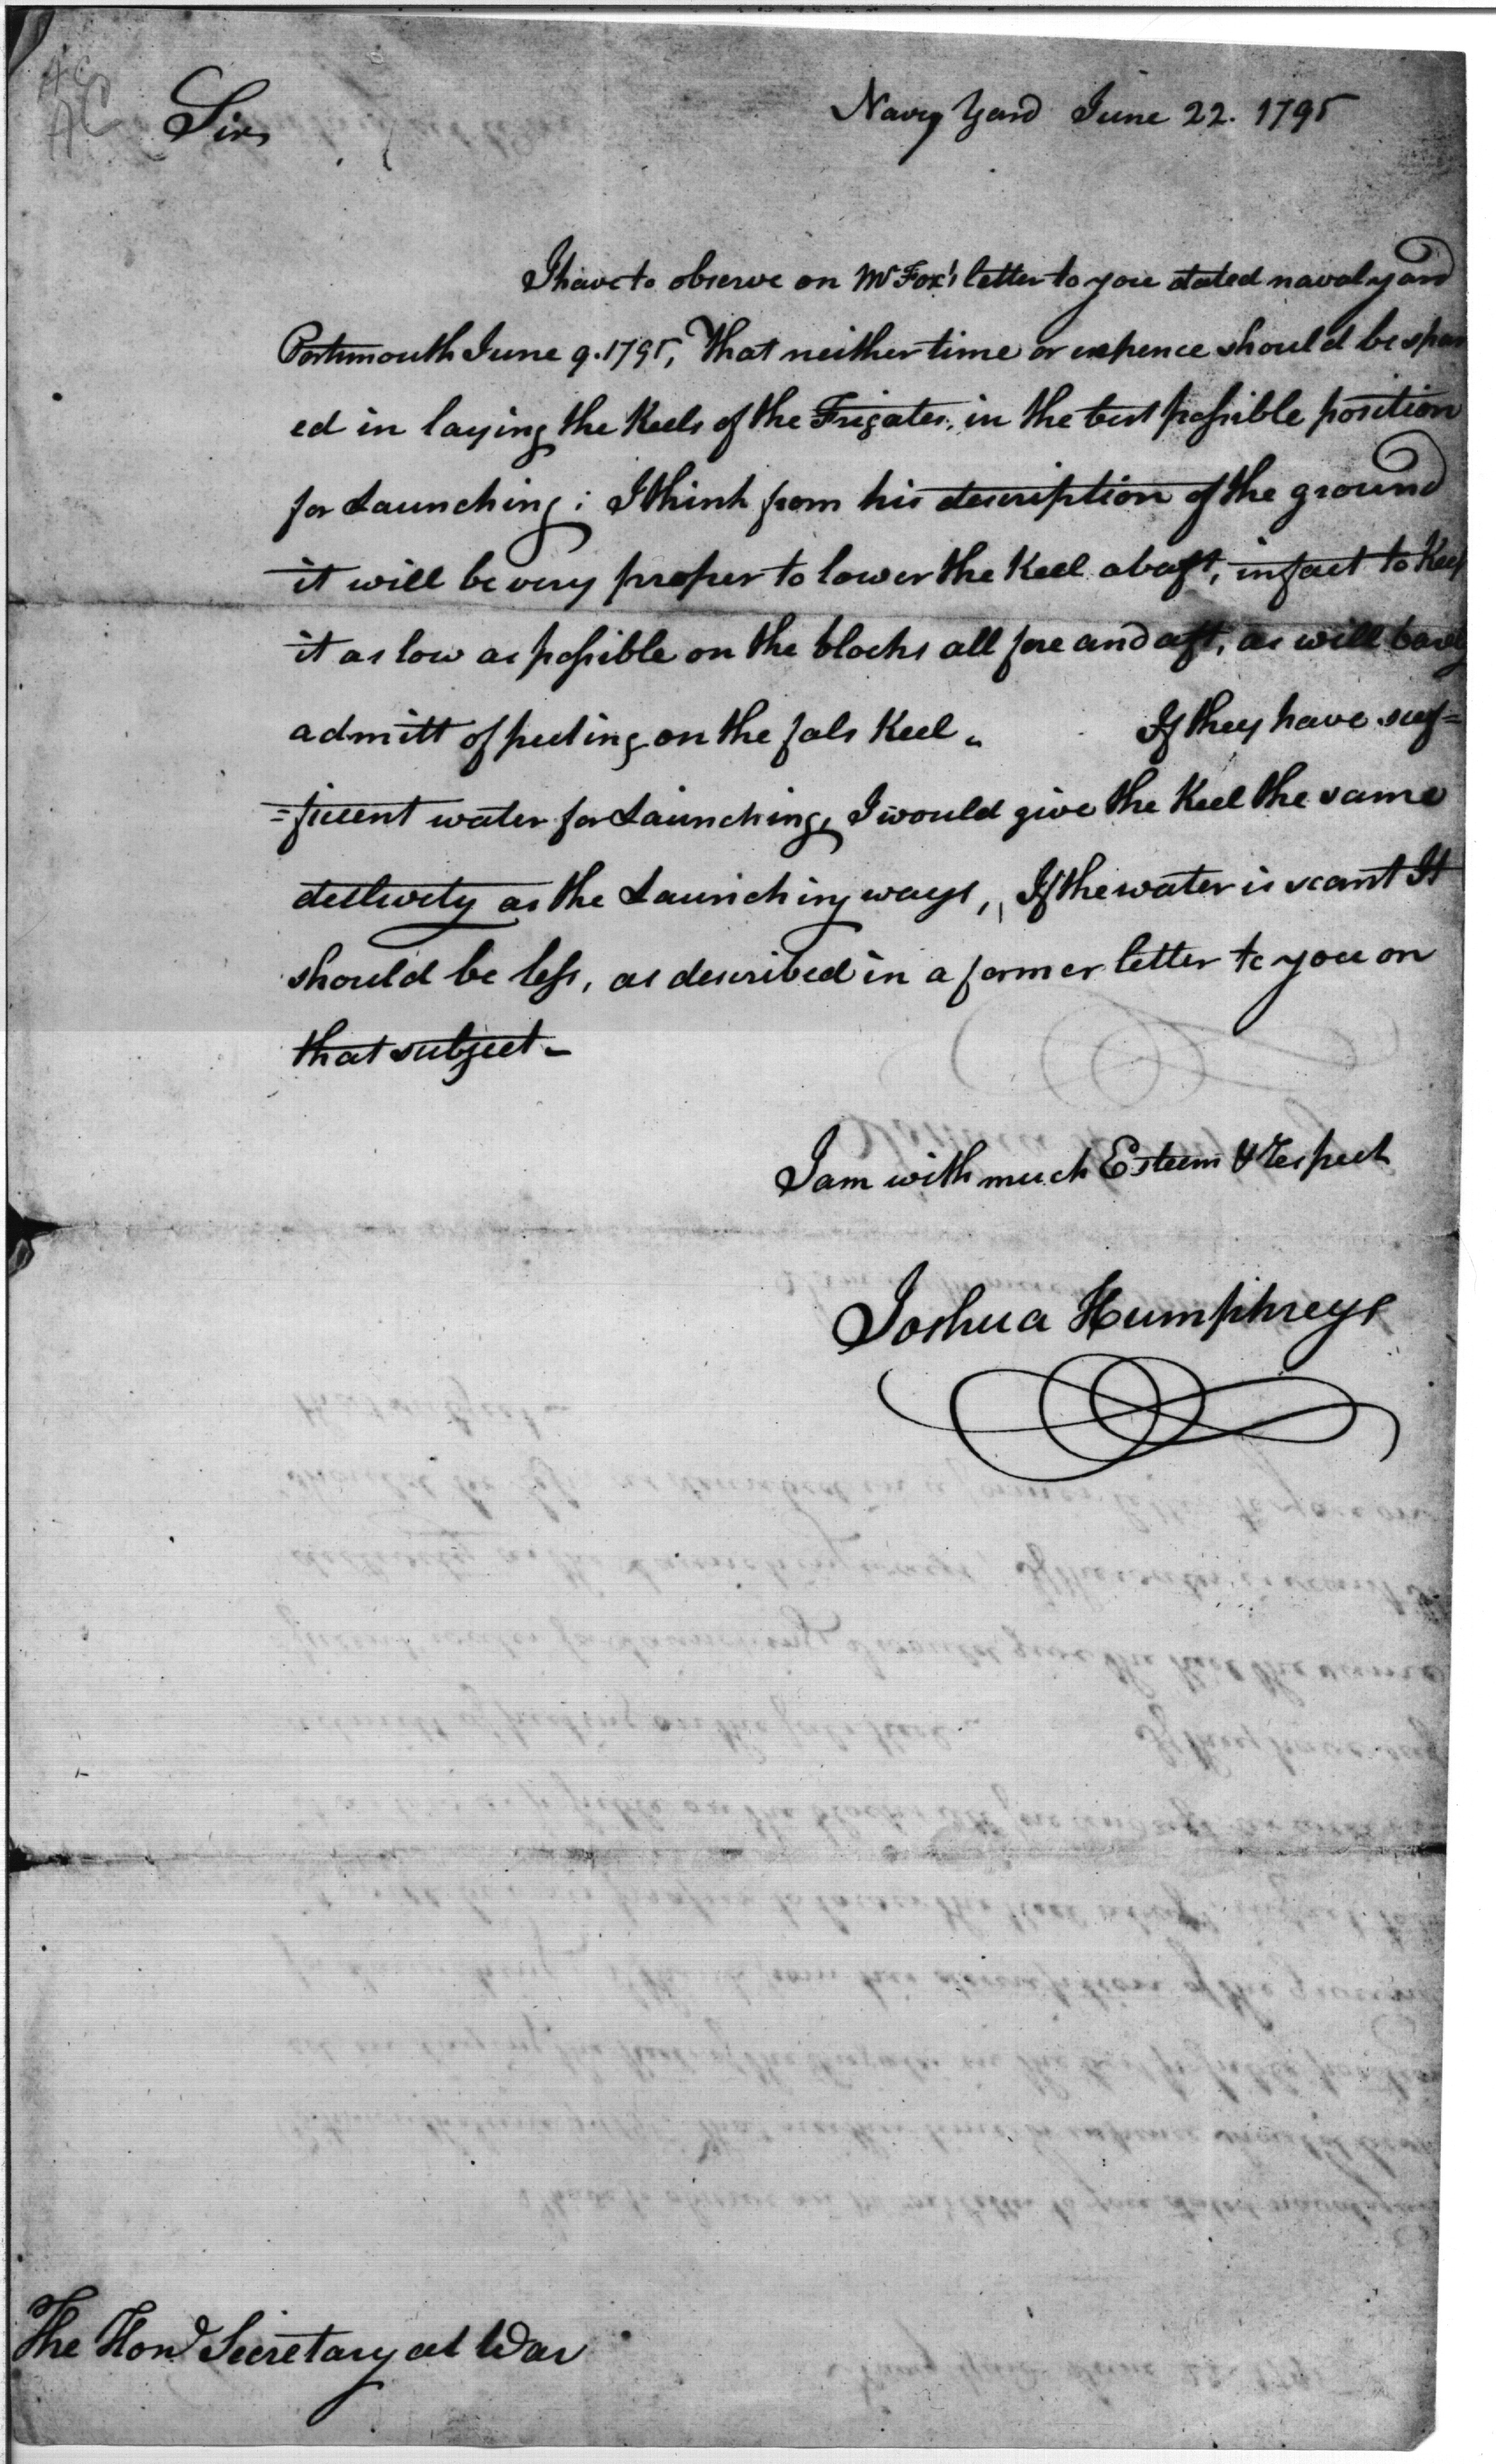 Sir,
Navy Yard June 22. 1795
I have to observe on Mr Fox's letter to you dated naval yard
Portsmouth June 9. 1795, That neither time or expence should be spar
ed in laying the Keels of the Frigates, in the best possible position
for Launching; I think from his description of the ground
it will be very proper to lower the Keel abaft, in fact to Keep
it as low as possible on the blocks all fore and aft, as will barely
admitt of puting on the fals Keel.
If they have suf=
=ficient water for Launching, I would give the Keel the same
declivety as the Launching ways, If the water is scant It
should be less, as described in a former letter to you on
that subject-
I am with much Esteem & respect
Joshua Humphreys
The Hond Secretary at War